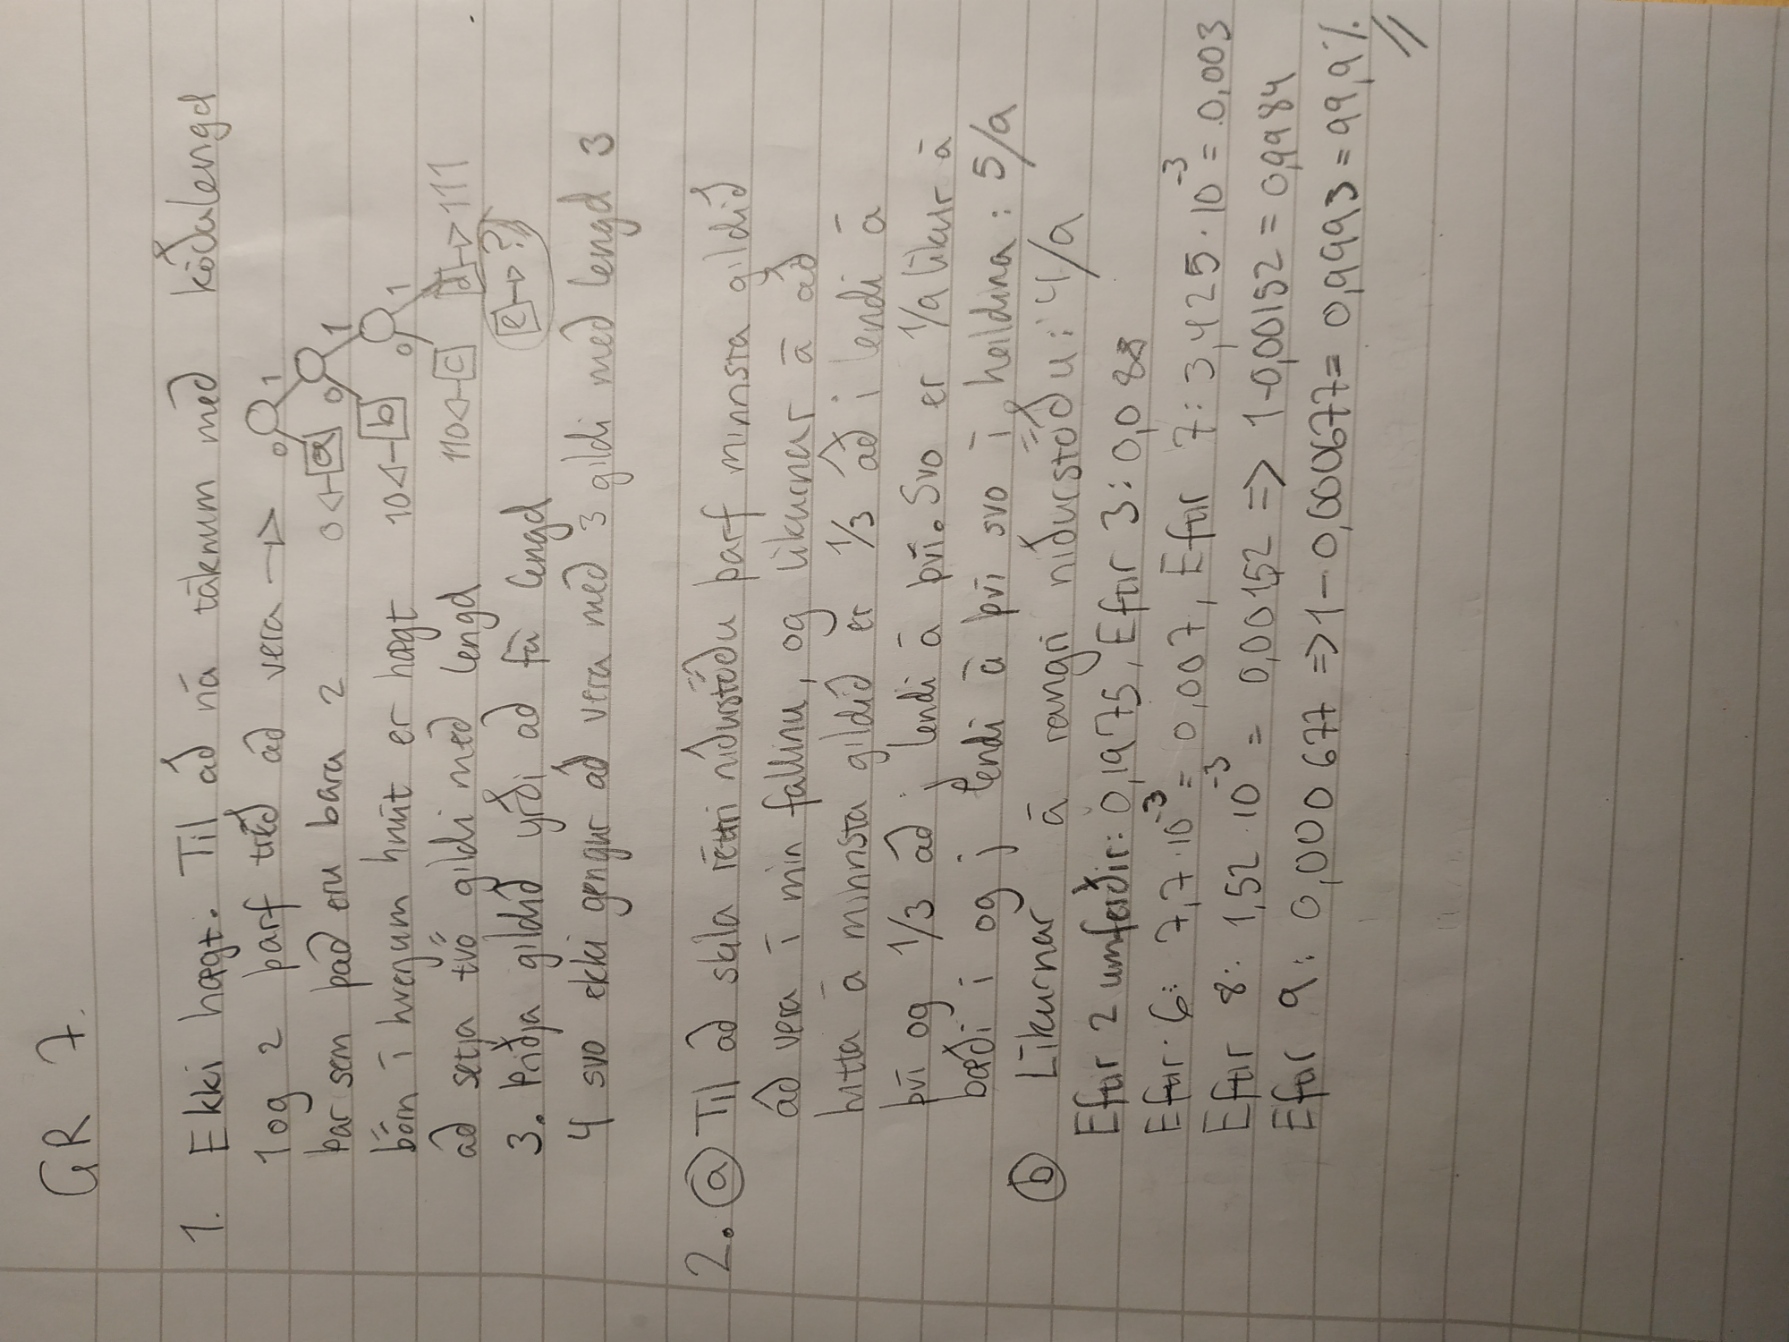 GR 7.
1. Ekki hægt. Til að ná táknum með kóðalengd
1 og 2 þarf tréð að vera →
0 1
þar sem það eru bara 2
0 ← a 0 1
börn í hverjum hnút er hægt
10 ← b 0 1
að setja tvö gildi með lengd
110 ← c d → 111
3. Þriðja gildið yrði að fá lengd
e → ?
4 svo ekki gengur að vera með 3 gildi með lengd 3
2. a Til að skila réttri niðurstöðu þarf minnsta gildið
að vera í min fallinu, og líkurnar á að
hitta á minnsta gildið er 1/3 að i lendi á
því og 1/3 að j lendi á því. Svo er 1/9 líkur á
bæði i og j lendi á því svo í heildina: 5/9
b Líkurnar á rangri niðurstöðu: 4/9
Eftir 2 umferðir: 0,1975, Eftir 3: 0,088
Eftir 6: 7,7 · 10⁻³ = 0,007, Eftir 7: 3,425 · 10⁻³ = 0,003
Eftir 8: 1,52 · 10⁻³ = 0,00152 => 1-0,00152 = 0,9984
Eftir 9: 0,000677 => 1 - 0,000677 = 0,9993 = 99,9%